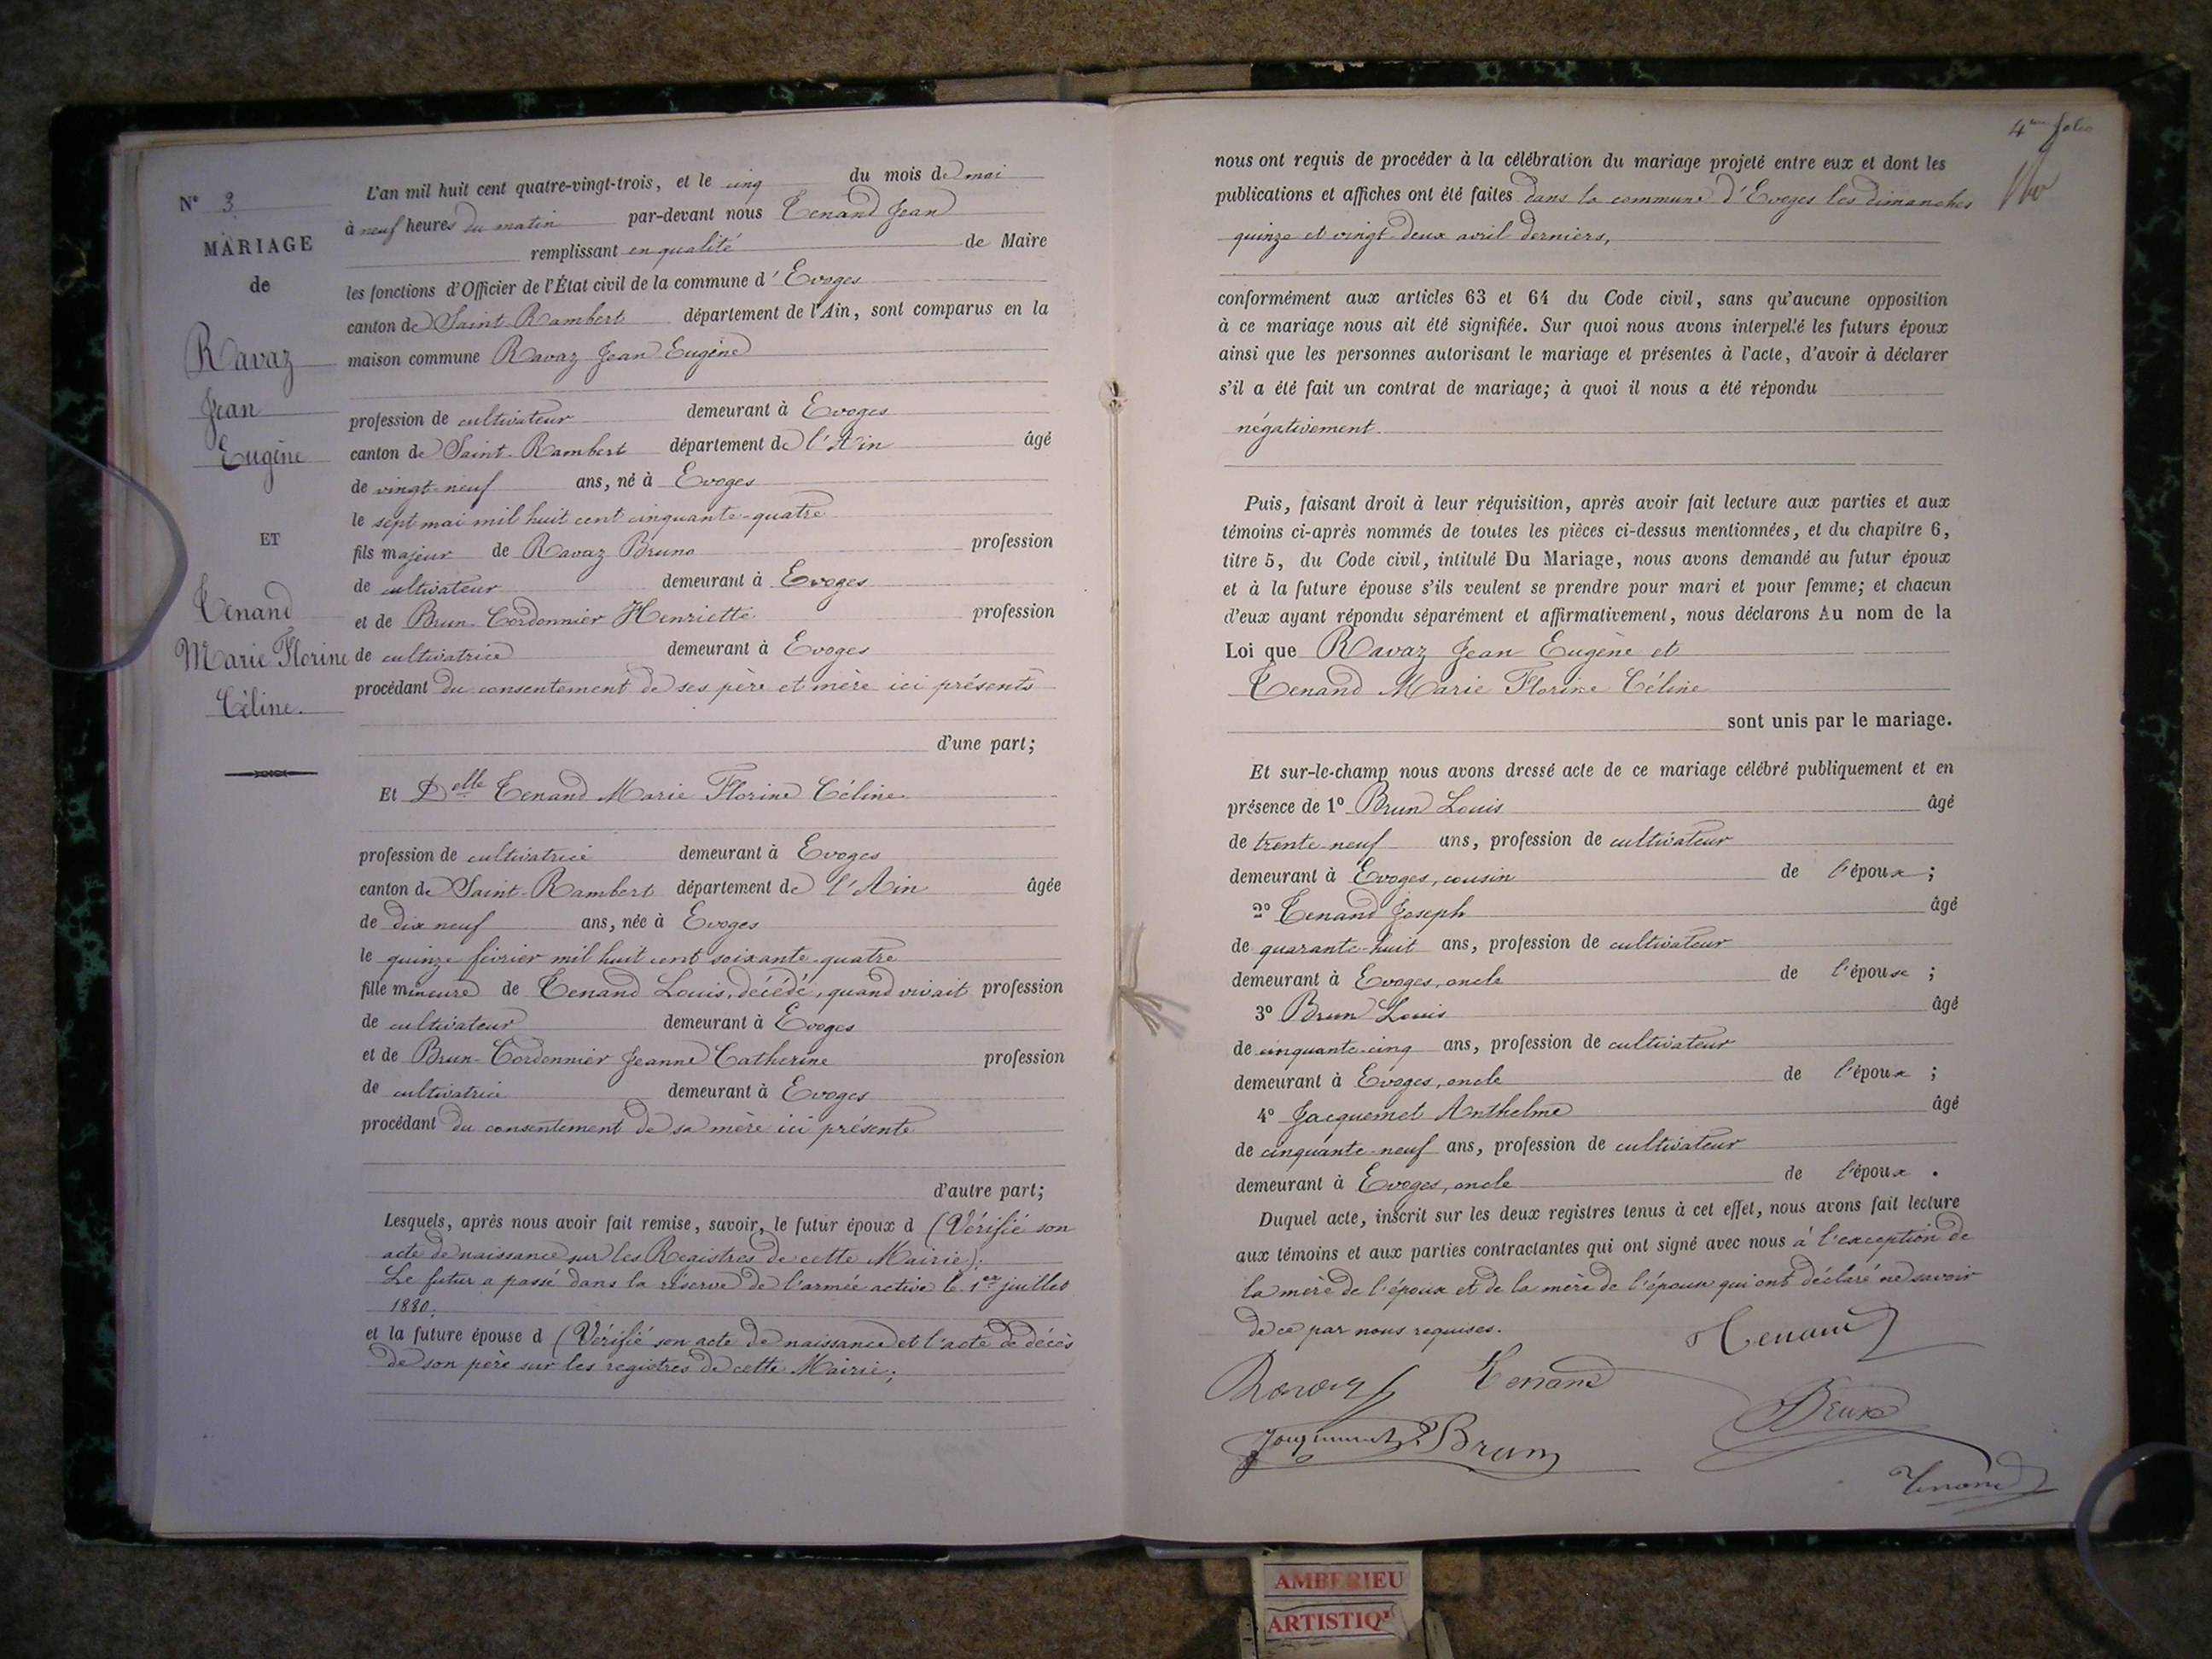 N° 3
MARIAGE
de
Ravaz
Jean
Eugène
ET
Tenand
Marie Florine
Céline.
L'an mil huit cent quatre-vingt-trois, et le cinq du mois de mai
à neuf heures du matin par-devant nous Tenand Jean
remplissant en qualité de Maire
les fonctions d'Officier de l'État civil de la commune d'Evoges
canton de Saint-Rambert département de l'Ain, sont comparus en la
maison commune Ravaz Jean Eugène
profession de cultivateur demeurant à Evoges
canton de Saint-Rambert département de l'Ain âgé
de vingt-neuf ans, né à Evoges
le sept mai mil huit cent cinquante-quatre
fils majeur de Ravaz Bruno profession
de cultivateur demeurant à Evoges
et de Brun-Cordonnier Henriette profession
de cultivatrice demeurant à Evoges
procédant du consentement de ses père et mère ici présents
d'une part;
Et Delle Tenand Marie Florine Céline
profession de cultivatrice demeurant à Evoges
canton de Saint-Rambert département de l'Ain âgée
de dix neuf ans, née à Evoges
le quinze février mil huit cent soixante-quatre
fille mineure de Tenand Louis, décédé, quand vivait profession
de cultivateur demeurant à Evoges
et de Brun-Cordonnier Jeanne Catherine profession
de cultivatrice demeurant à Evoges
procédant du consentement de sa mère ici présente
d'autre part;
Lesquels, après nous avoir fait remise, savoir, le futur époux d (Vérifié son
acte de naissance sur les Registres de cette Mairie).
Le futur a passé dans la réserve de l'armée active le 1er juillet
1880.
et la future épouse d (Vérifié son acte de naissance et l'acte de décès
de son père sur les registres de cette Mairie;
4me folio
nous ont requis de procéder à la célébration du mariage projeté entre eux et dont les
publications et affiches ont été faites dans la commune d'Evoges les dimanches
quinze et vingt-deux avril derniers,
conformément aux articles 63 et 64 du Code civil, sans qu'aucune opposition
à ce mariage nous ait été signifiée. Sur quoi nous avons interpellé les futurs époux
ainsi que les personnes autorisant le mariage et présentes à l'acte, d'avoir à déclarer
s'il a été fait un contrat de mariage; à quoi il nous a été répondu
négativement.
Puis, faisant droit à leur réquisition, après avoir fait lecture aux parties et aux
témoins ci-après nommés de toutes les pièces ci-dessus mentionnées, et du chapitre 6,
titre 5, du Code civil, intitulé Du Mariage, nous avons demandé au futur époux
et à la future épouse s'ils veulent se prendre pour mari et pour femme; et chacun
d'eux ayant répondu séparément et affirmativement, nous déclarons Au nom de la
Loi que Ravaz Jean Eugène et
Tenand Marie Florine Céline
sont unis par le mariage.
Et sur-le-champ nous avons dressé acte de ce mariage célébré publiquement et en
présence de 1° Brun Louis âgé
de trente-neuf ans, profession de cultivateur
demeurant à Evoges, cousin de l'époux ;
2° Tenand Joseph âgé
de quarante-huit ans, profession de cultivateur
demeurant à Evoges, oncle de l'épouse ;
3° Brun Louis âgé
de cinquante-cinq ans, profession de cultivateur
demeurant à Evoges, oncle de l'époux ;
4° Jacquemet Anthelme âgé
de cinquante-neuf ans, profession de cultivateur
demeurant à Evoges, oncle de l'époux .
Duquel acte, inscrit sur les deux registres tenus à cet effet, nous avons fait lecture
aux témoins et aux parties contractantes qui ont signé avec nous à l'exception de
la mère de l'époux et de la mère de l'épouse qui ont déclaré ne savoir
de ce par nous requises.
Tenand
Ravaz Tenand
Brun
Jacquemet Brun
Tenand
AMBERIEU
ARTISTIQ